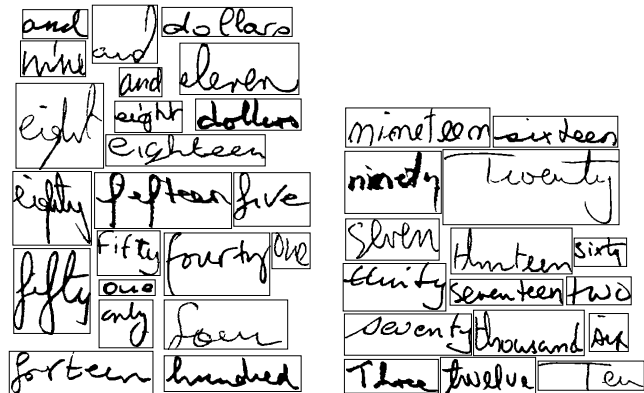 and and dollars
nine and eleven
eight eight dollars
eighteen
eighty fifteen five
fifty fourty one
fifty one
only four
forteen hundred
nineteen sixteen
ninety Twenty
seven thirteen sixty
thirty seventeen two
seventy thousand six
Three twelve Ten